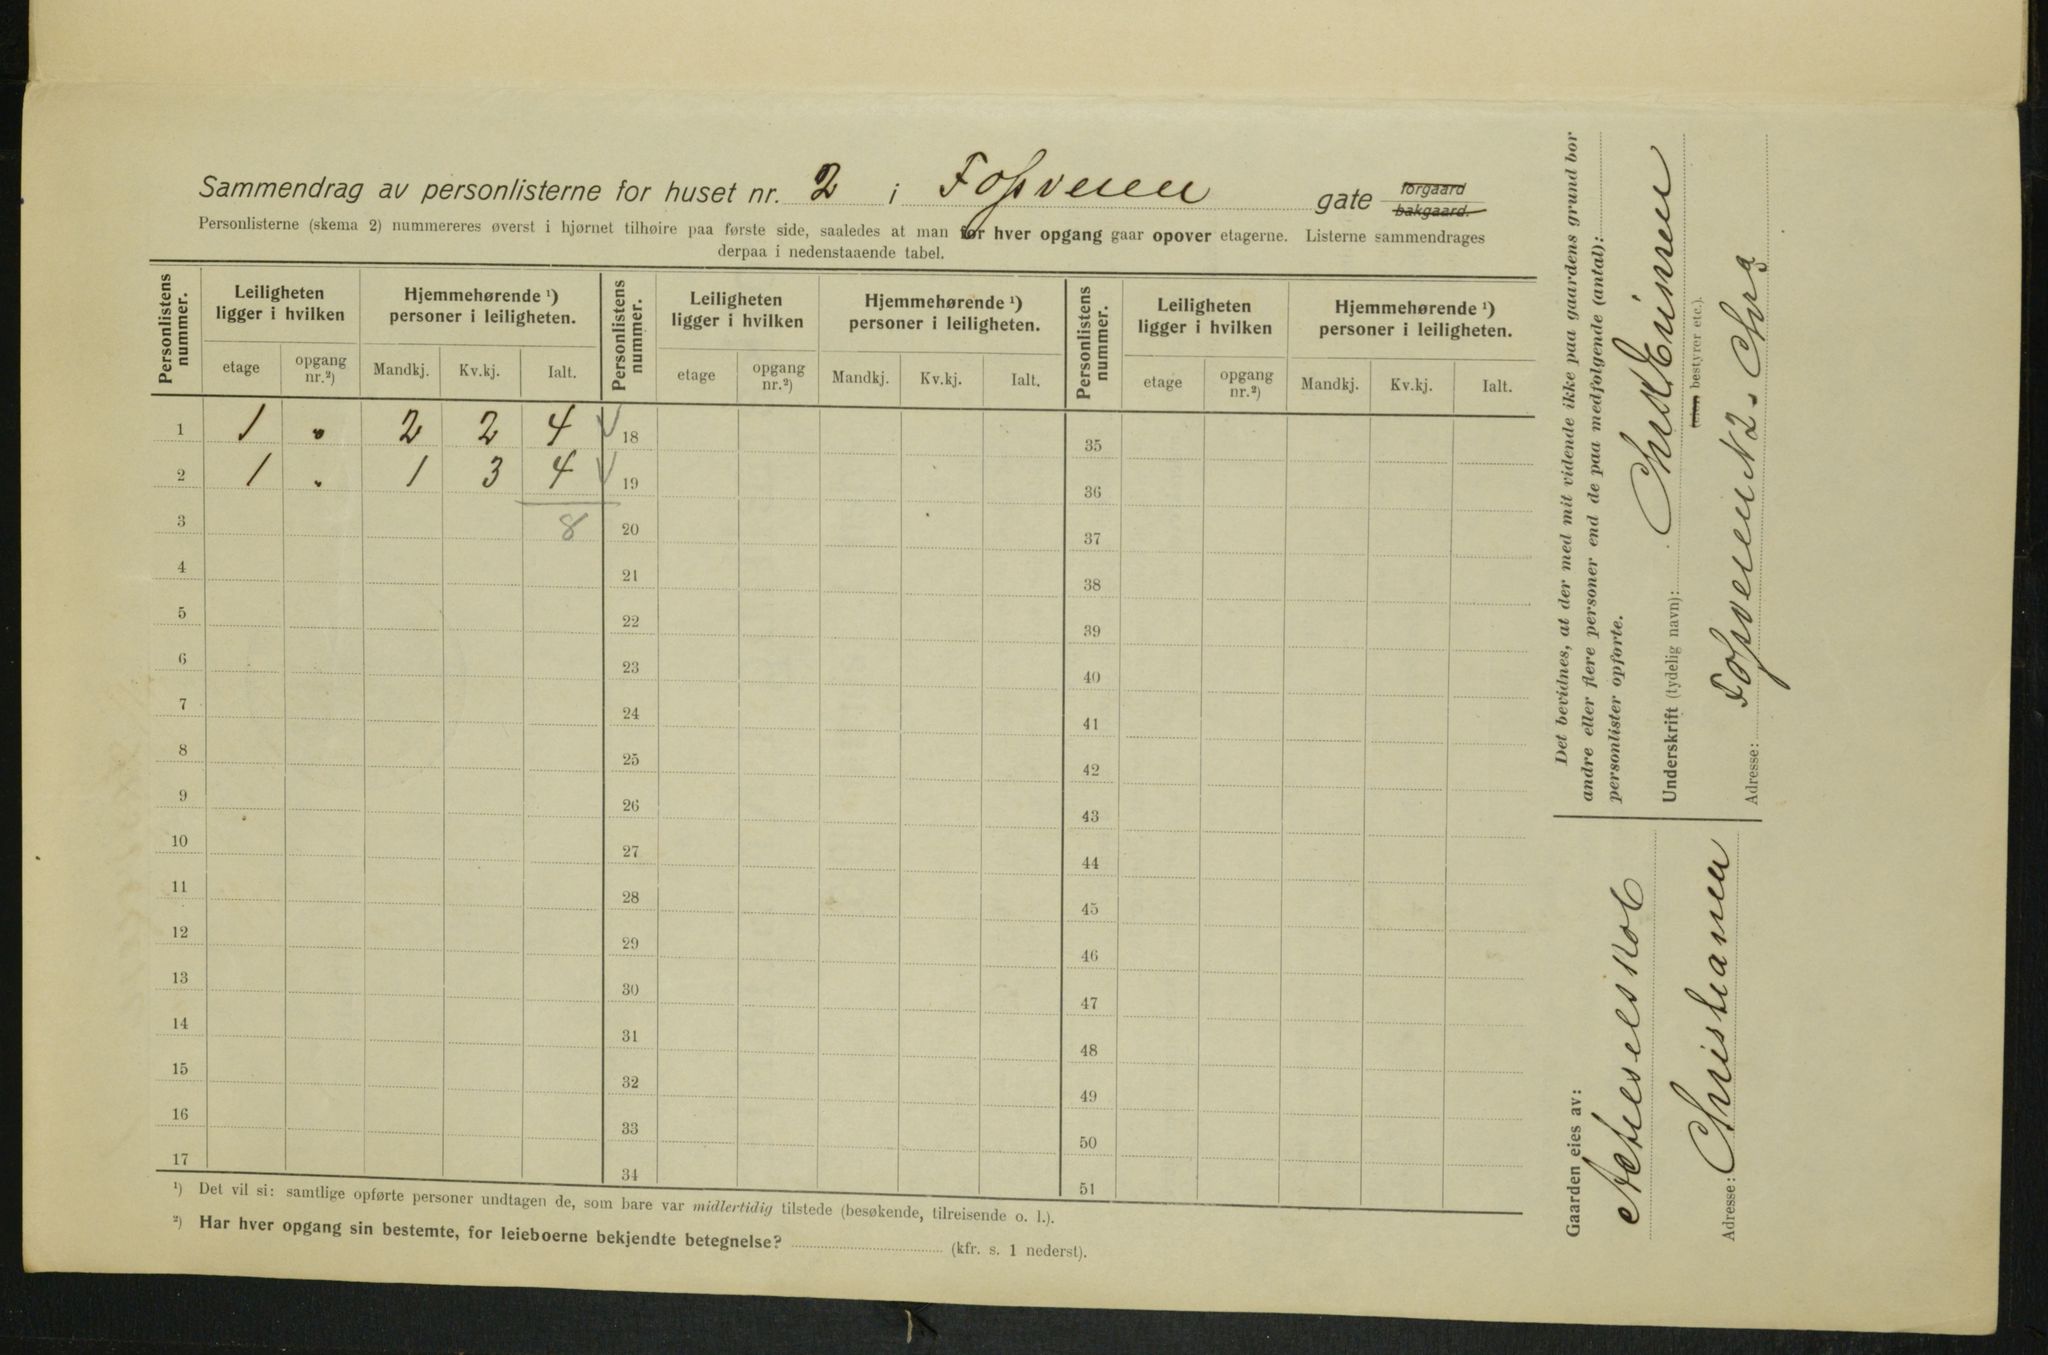 Sammendrag av personlisterne for huset nr. 2 i Fossveien gate forgaard bakgaard.
Personlisterne (skema 2) nummereres øverst i hjørnet tilhøire paa første side, saaledes at man for hver opgang gaar opover etagerne. Listerne sammendrages
derpaa i nedenstaaende tabel.
Personlistens nummer. Leiligheten ligger i hvilken Hjemmehørende ¹) personer i leiligheten. Personlistens nummer. Leiligheten ligger i hvilken Hjemmehørende ¹) personer i leiligheten. Personlistens nummer. Leiligheten ligger i hvilken Hjemmehørende ¹) personer i leiligheten.
etage opgang nr.²) Mandkj. Kv.kj. Ialt. etage opgang nr.²) Mandkj. Kv.kj. Ialt. etage opgang nr.²) Mandkj. Kv.kj. Ialt.
1 1 „ 2 2 4 18 35
2 1 „ 1 3 4 19 36
3 8 20 37
4 21 38
5 22 39
6 23 40
7 24 41
8 25 42
9 26 43
10 27 44
11 28 45
12 29 46
13 30 47
14 31 48
15 32 49
16 33 50
17 34 51
¹) Det vil si: samtlige opførte personer undtagen de, som bare var midlertidig tilstede (besøkende, tilreisende o. l.).
²) Har hver opgang sin bestemte, for leieboerne bekjendte betegnelse? (kfr. s. 1 nederst).
Det bevidnes, at der med mit vidende ikke paa gaardens grund bor
andre eller flere personer end de paa medfølgende (antal):
personlister opførte.
Underskrift (tydelig navn):
(den bestyrer etc.).
Adresse: Fossveien N 2. Chra
Gaarden eies av:
Actieselskob
Adresse: Christiania